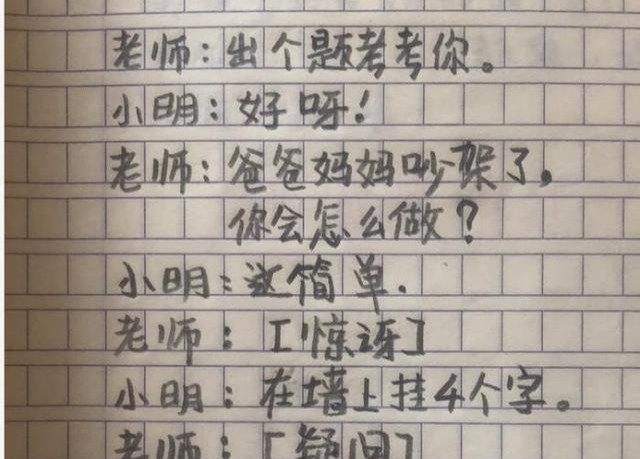 老师：出个题考考你。
小明：好呀！
老师：爸爸妈妈吵架了，
你会怎么做？
小明：这简单.
老师：[惊讶]
小明：在墙上挂4个字。
老师：[疑问]